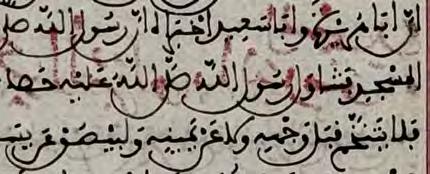 ان ابا هريرة وابا سعيد اخبراه ان رسول الله صلى
المسجد فتناول رسول الله صلى الله عليه حصا
فلا يتنخم قبل وجهه ولا عن يمينه وليبصق عن